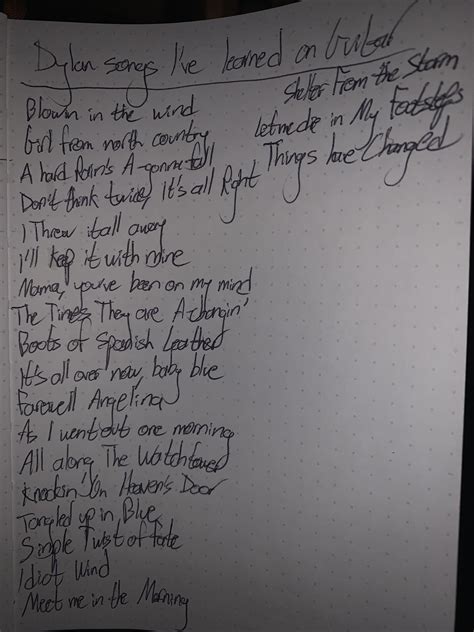 Dylan songs I've learned on Guitar
Blowin in the wind
Girl from north country
A hard Rain's A-gonna fall
Don't think twice, It's all Right
I Threw it all away
I'll keep it with mine
Mama, you've been on my mind
The Times They are A-changin'
Boots of Spanish Leather
It's all over now, baby blue
Farewell Angelina
As I went out one morning
All along The Watchtower
Knockin' On Heaven's Door
Tangled up in Blue
Simple Twist of Fate
Idiot Wind
Meet me in the Morning
Shelter From the Storm
Let me die in My Footsteps
Things have Changed